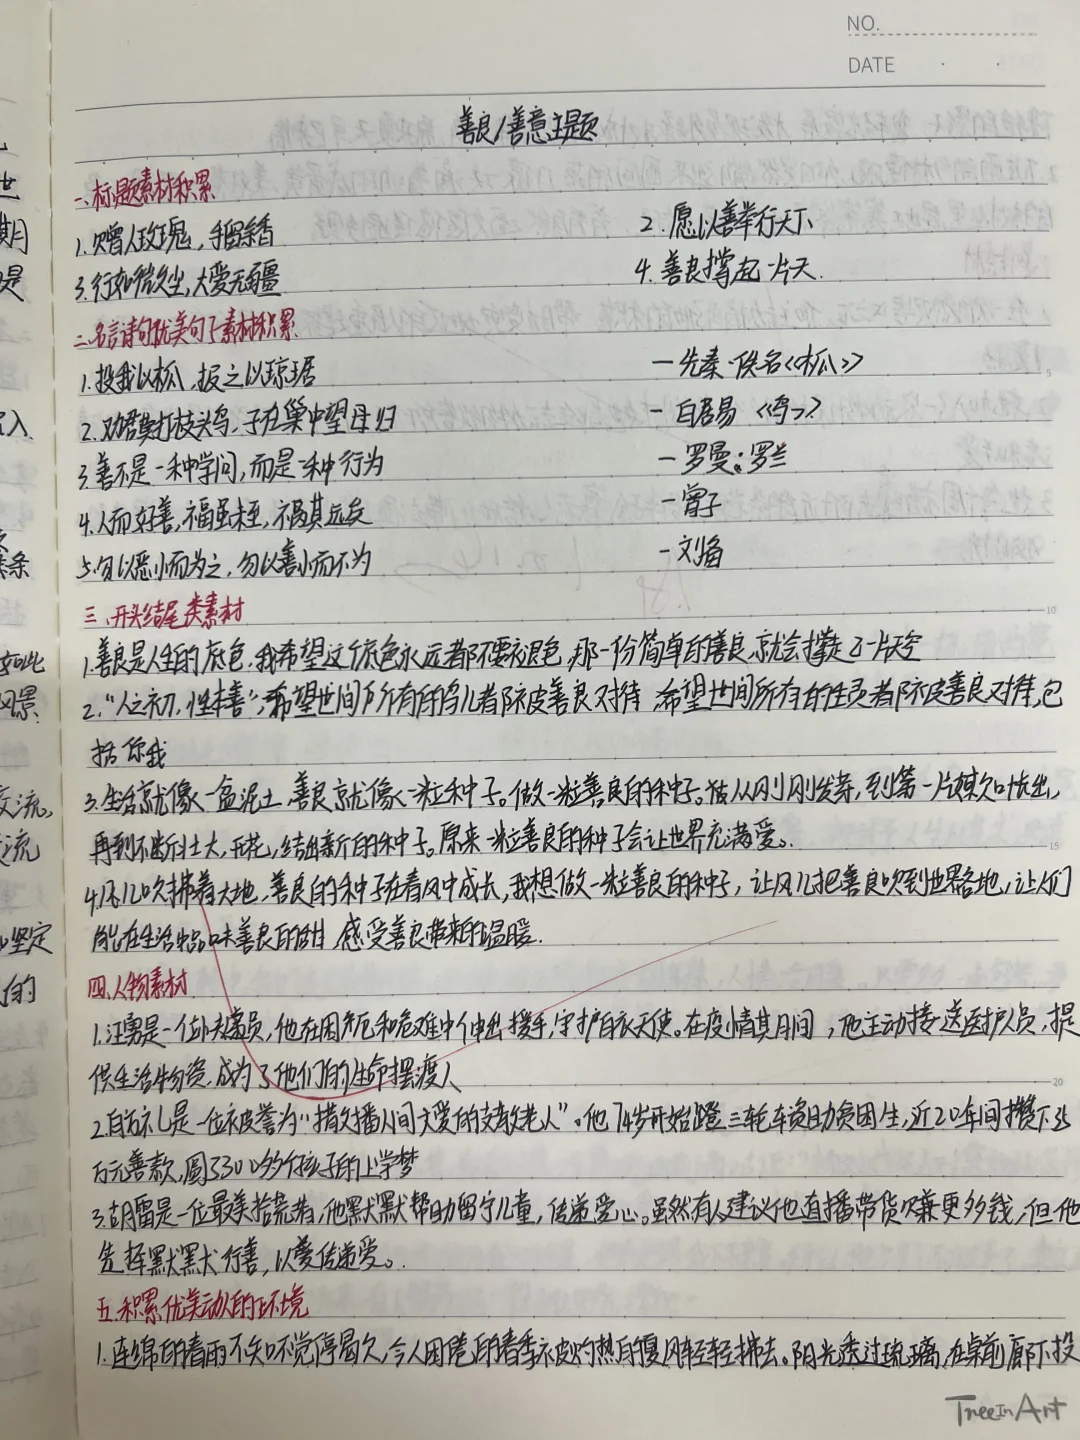 NO.
DATE
善良/善意主题
一、标题素材积累
1.赠人玫瑰，手留余香 2.愿以善举行天下
3.行如微尘，大爱无疆 4.善良撑起一片天.
二.名言诗句优美句子素材积累
1.投我以木瓜，报之以琼琚 —先秦·佚名《木瓜》
2.劝君莫打枝头鸟，子在巢中望母归 —白居易《鸟》
3.善不是一种学问，而是一种行为 —罗曼·罗兰
4.人而好善，福虽未至，祸其远矣 —曾子
5.勿以恶小而为之，勿以善小而不为 —刘备
三.开头结尾类素材
1.善良是人生的底色，我希望这个底色永远都不要褪色，那一份简单的善良，就会撑起一片天空
2."人之初，性本善"，希望世间所有的鸟儿都被善良对待，希望世间所有的生灵都被善良对待，包
括你我
3.生活就像一盆泥土，善良就像一粒种子。做一粒善良的种子。从刚刚发芽，到第一片嫩叶长出，
再到不断壮大，开花，结出新的种子。原来一粒善良的种子会让世界充满爱。
4.风儿吹拂着大地，善良的种子在春风中成长，我想做一粒善良的种子，让风儿把善良吹到世界各地，让人们
能在生活中品味善良的甜，感受善良带来的温暖.
四.人物素材
1.汪勇是一位快递员，他在困厄和危难中伸出援手，守护白衣天使。在疫情其月间，他主动接送医护人员，提
供生活物资，成为了他们的生命摆渡人
2.白方礼是一位被誉为"播人间大爱的支教老人"。他74岁开始蹬三轮车资助贫困生，近20年间攒下35
万元善款，圆了300多个孩子的上学梦
3.胡雷是一位最美拾荒者，他默默帮助留守儿童，传递爱心。虽然有人建议他直播带货赚更多钱，但他
选择默默行善，以爱传递爱。
五.积累优美动人的环境
1.连绵的春雨不知不觉停留，令人困倦的春季被灼热的夏风轻轻拂去。阳光透过琉璃，在桌前廊下投
Tree In Art